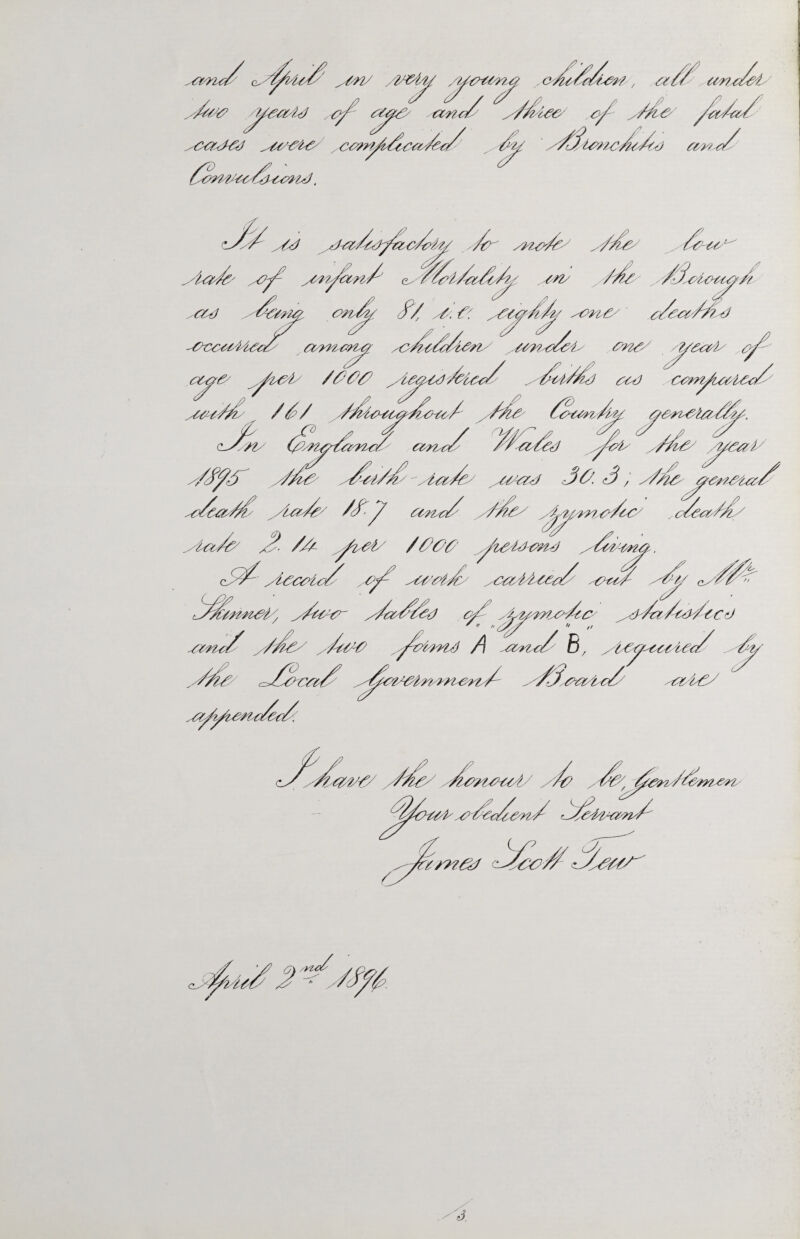 and April in very young children, all under
two years of age and three of the fatal
cases were complicated by Bronchitis and
Convulsions.
It is satisfactory to note the low
rate of infant Mortality in the Borough
as being only 81, i.e. eighty one deaths
occurred among children under one year of
age per 1000 registered births as compared
with 161 throughout the Country generally.
In England and Wales for the year
1895 the birth-rate was 30.3; the general
death rate 18.7 and the zymotic death
rate 2.14 per 1000 persons living.
A record of work carried out by Mr.
Skinner, two tables of zymotic statistics
and the two forms "A" and "B", required by
the Local Government Board are
appended.
I have the honour to be, Gentlemen
Your obedient Servant
James Scott Tew
April 2nd 1896.
3.